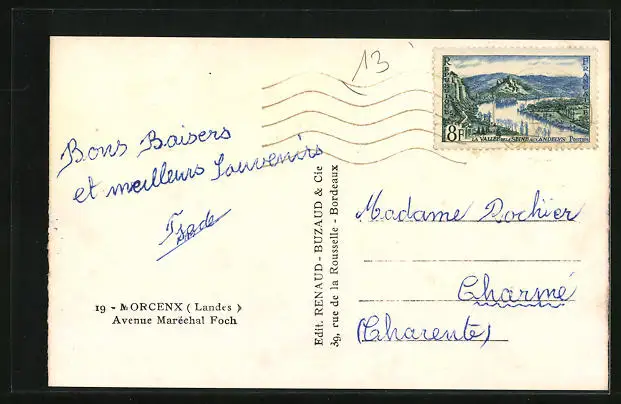 13
RÉPUBLIQUE
FRANÇAISE
8F
LA VALLÉE DE LA SEINE AUX ANDELYS POSTES
Bons Baisers
et meilleurs Souvenirs
19 - MORCENX ( Landes )
Avenue Maréchal Foch
Edit. RENAUD - BUZAUD & Cie
39, rue de la Rousselle - Bordeaux
Madame Rochier
Charmé
(Charente)